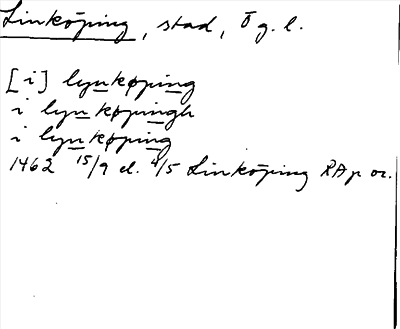 Linköping, stad, Ög.l.
[i] lynkøping
i lynkøpingh
i lynkøping
1462 15/9 el. 4/5 Linköping RAp or.